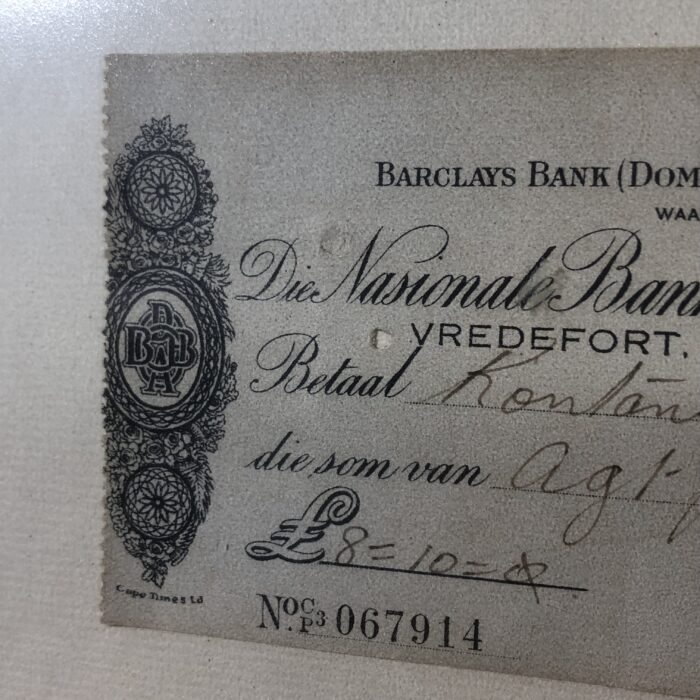 BARCLAYS BANK (DOM
WAA
Die Nasionale Ban
VREDEFORT,
Betaal Kontan
die som van Agt p
£ 8=10=0
DBBA
Cape Times Ld
No. C/P3 067914